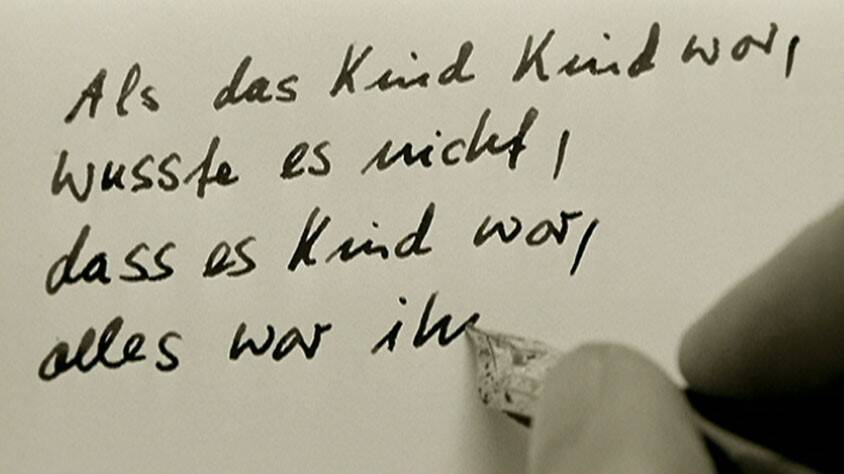 Als das Kind Kind war,
wusste es nicht,
dass es Kind war,
alles war ih